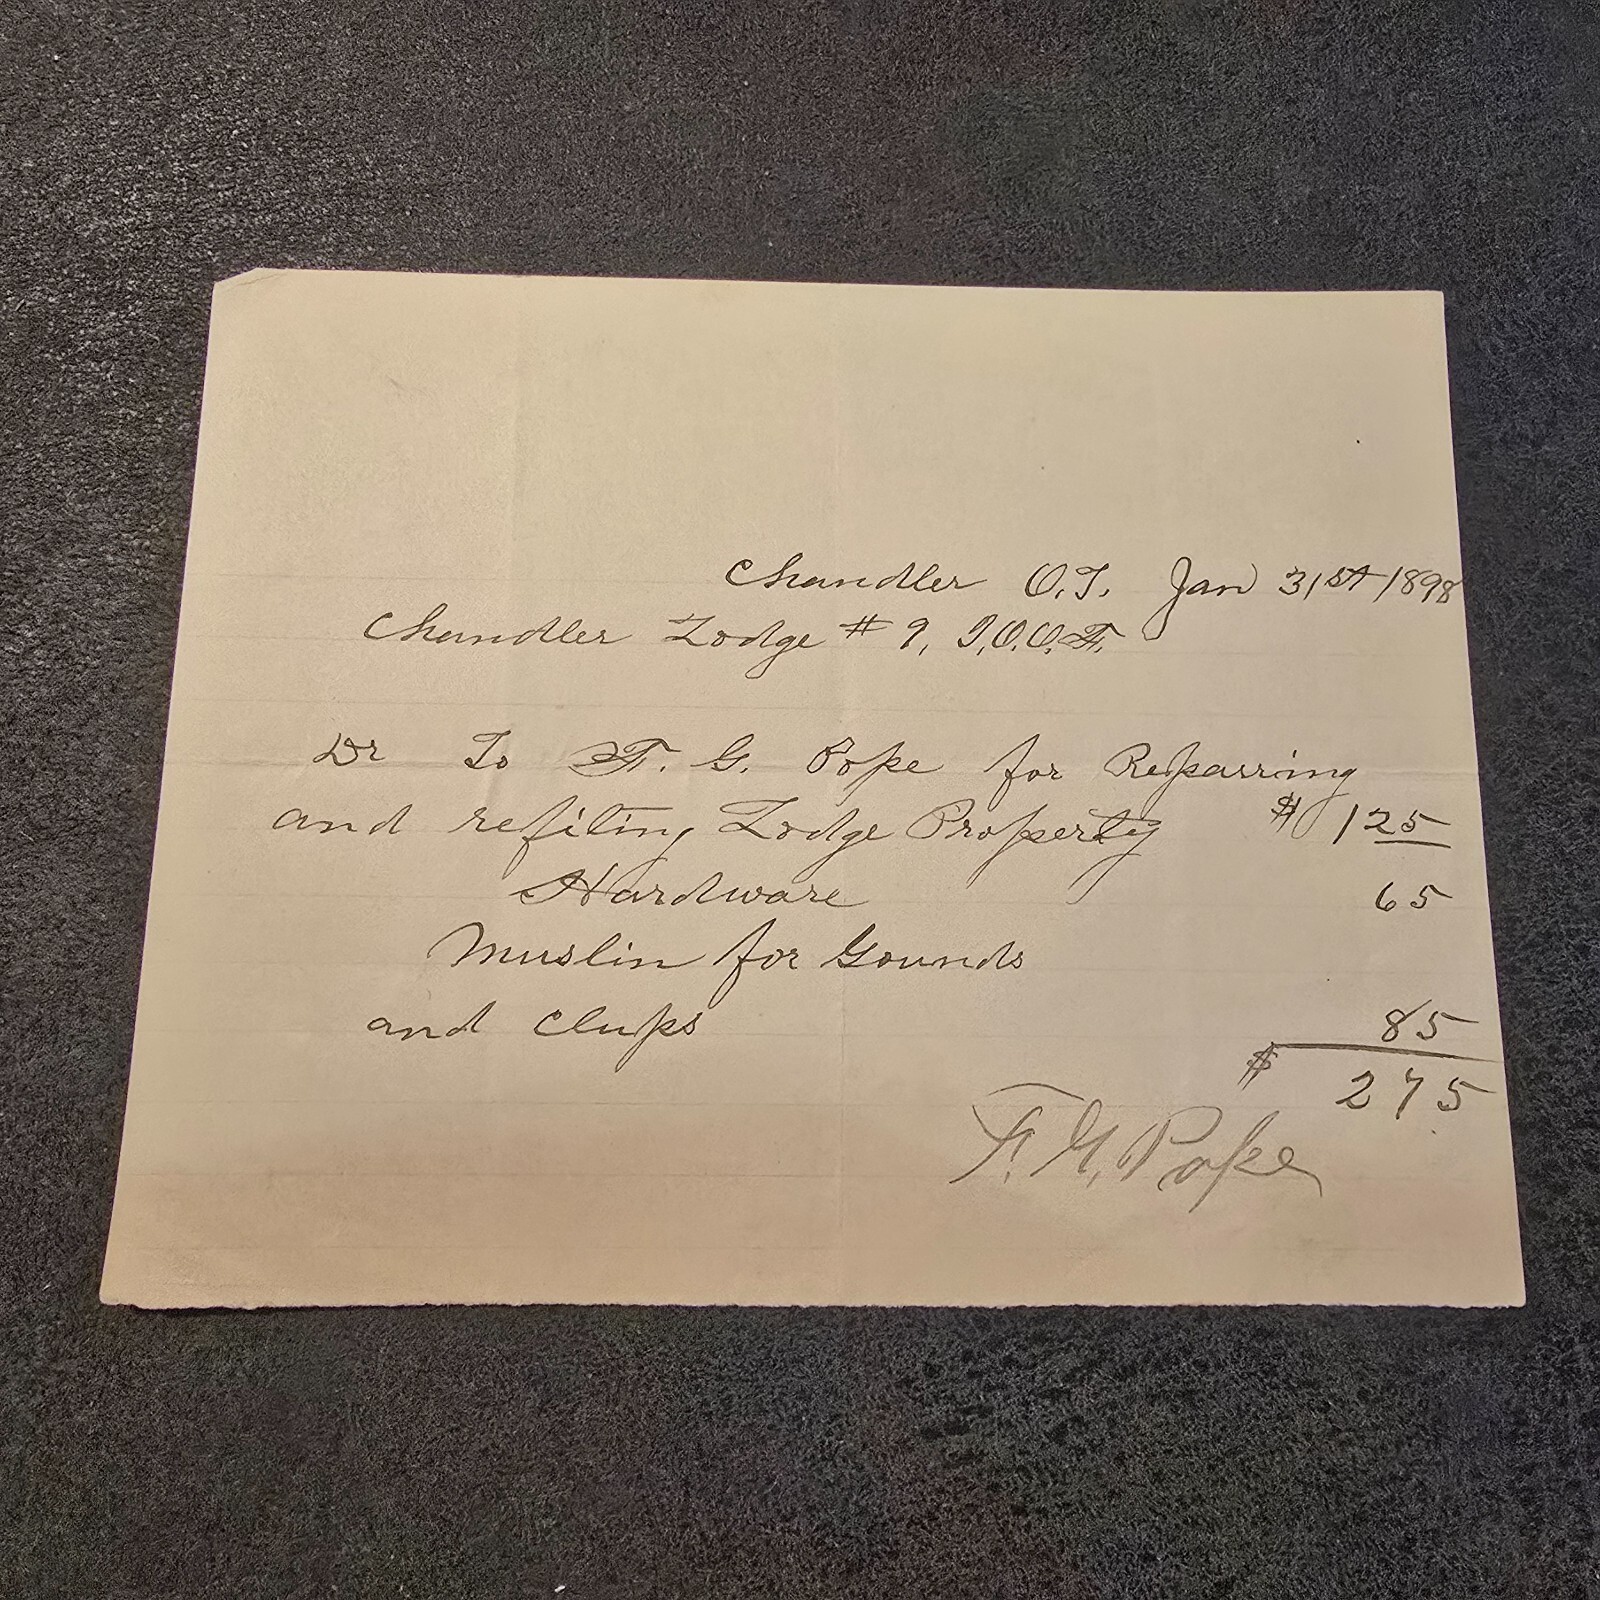 Chandler O.T. Jan 31st 1898
Chandler Lodge # 9, I.O.O.F.
Dr To F. G. Pope for Reparring
and refiting Lodge Property $ 1 25
Hardware 65
Muslin for Gounds
and Clups 85
$ 2 75
F. G. Pope